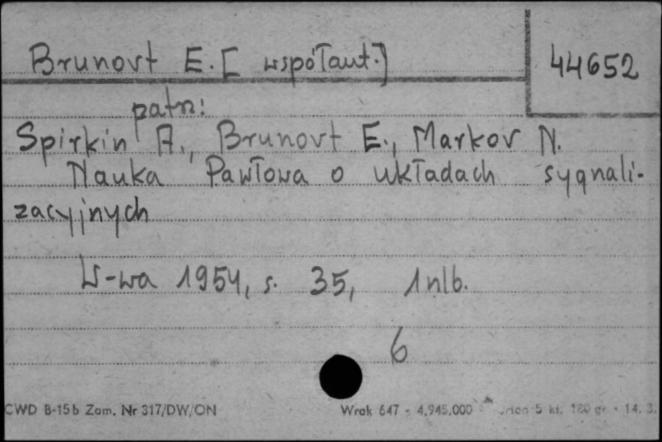 Brunovt E. [współaut.]
44652
patrz:
Spirkin A., Brunovt E., Markov N.
Nauka Pawłowa o układach sygnali-
zacyjnych
W-wa 1954, s. 35, 1 nlb.
6
CWD B-15b Zam. Nr 317/DW/ON
Wrak 647 - 4.945.000 5 kl. 180 gr - 14. 3.